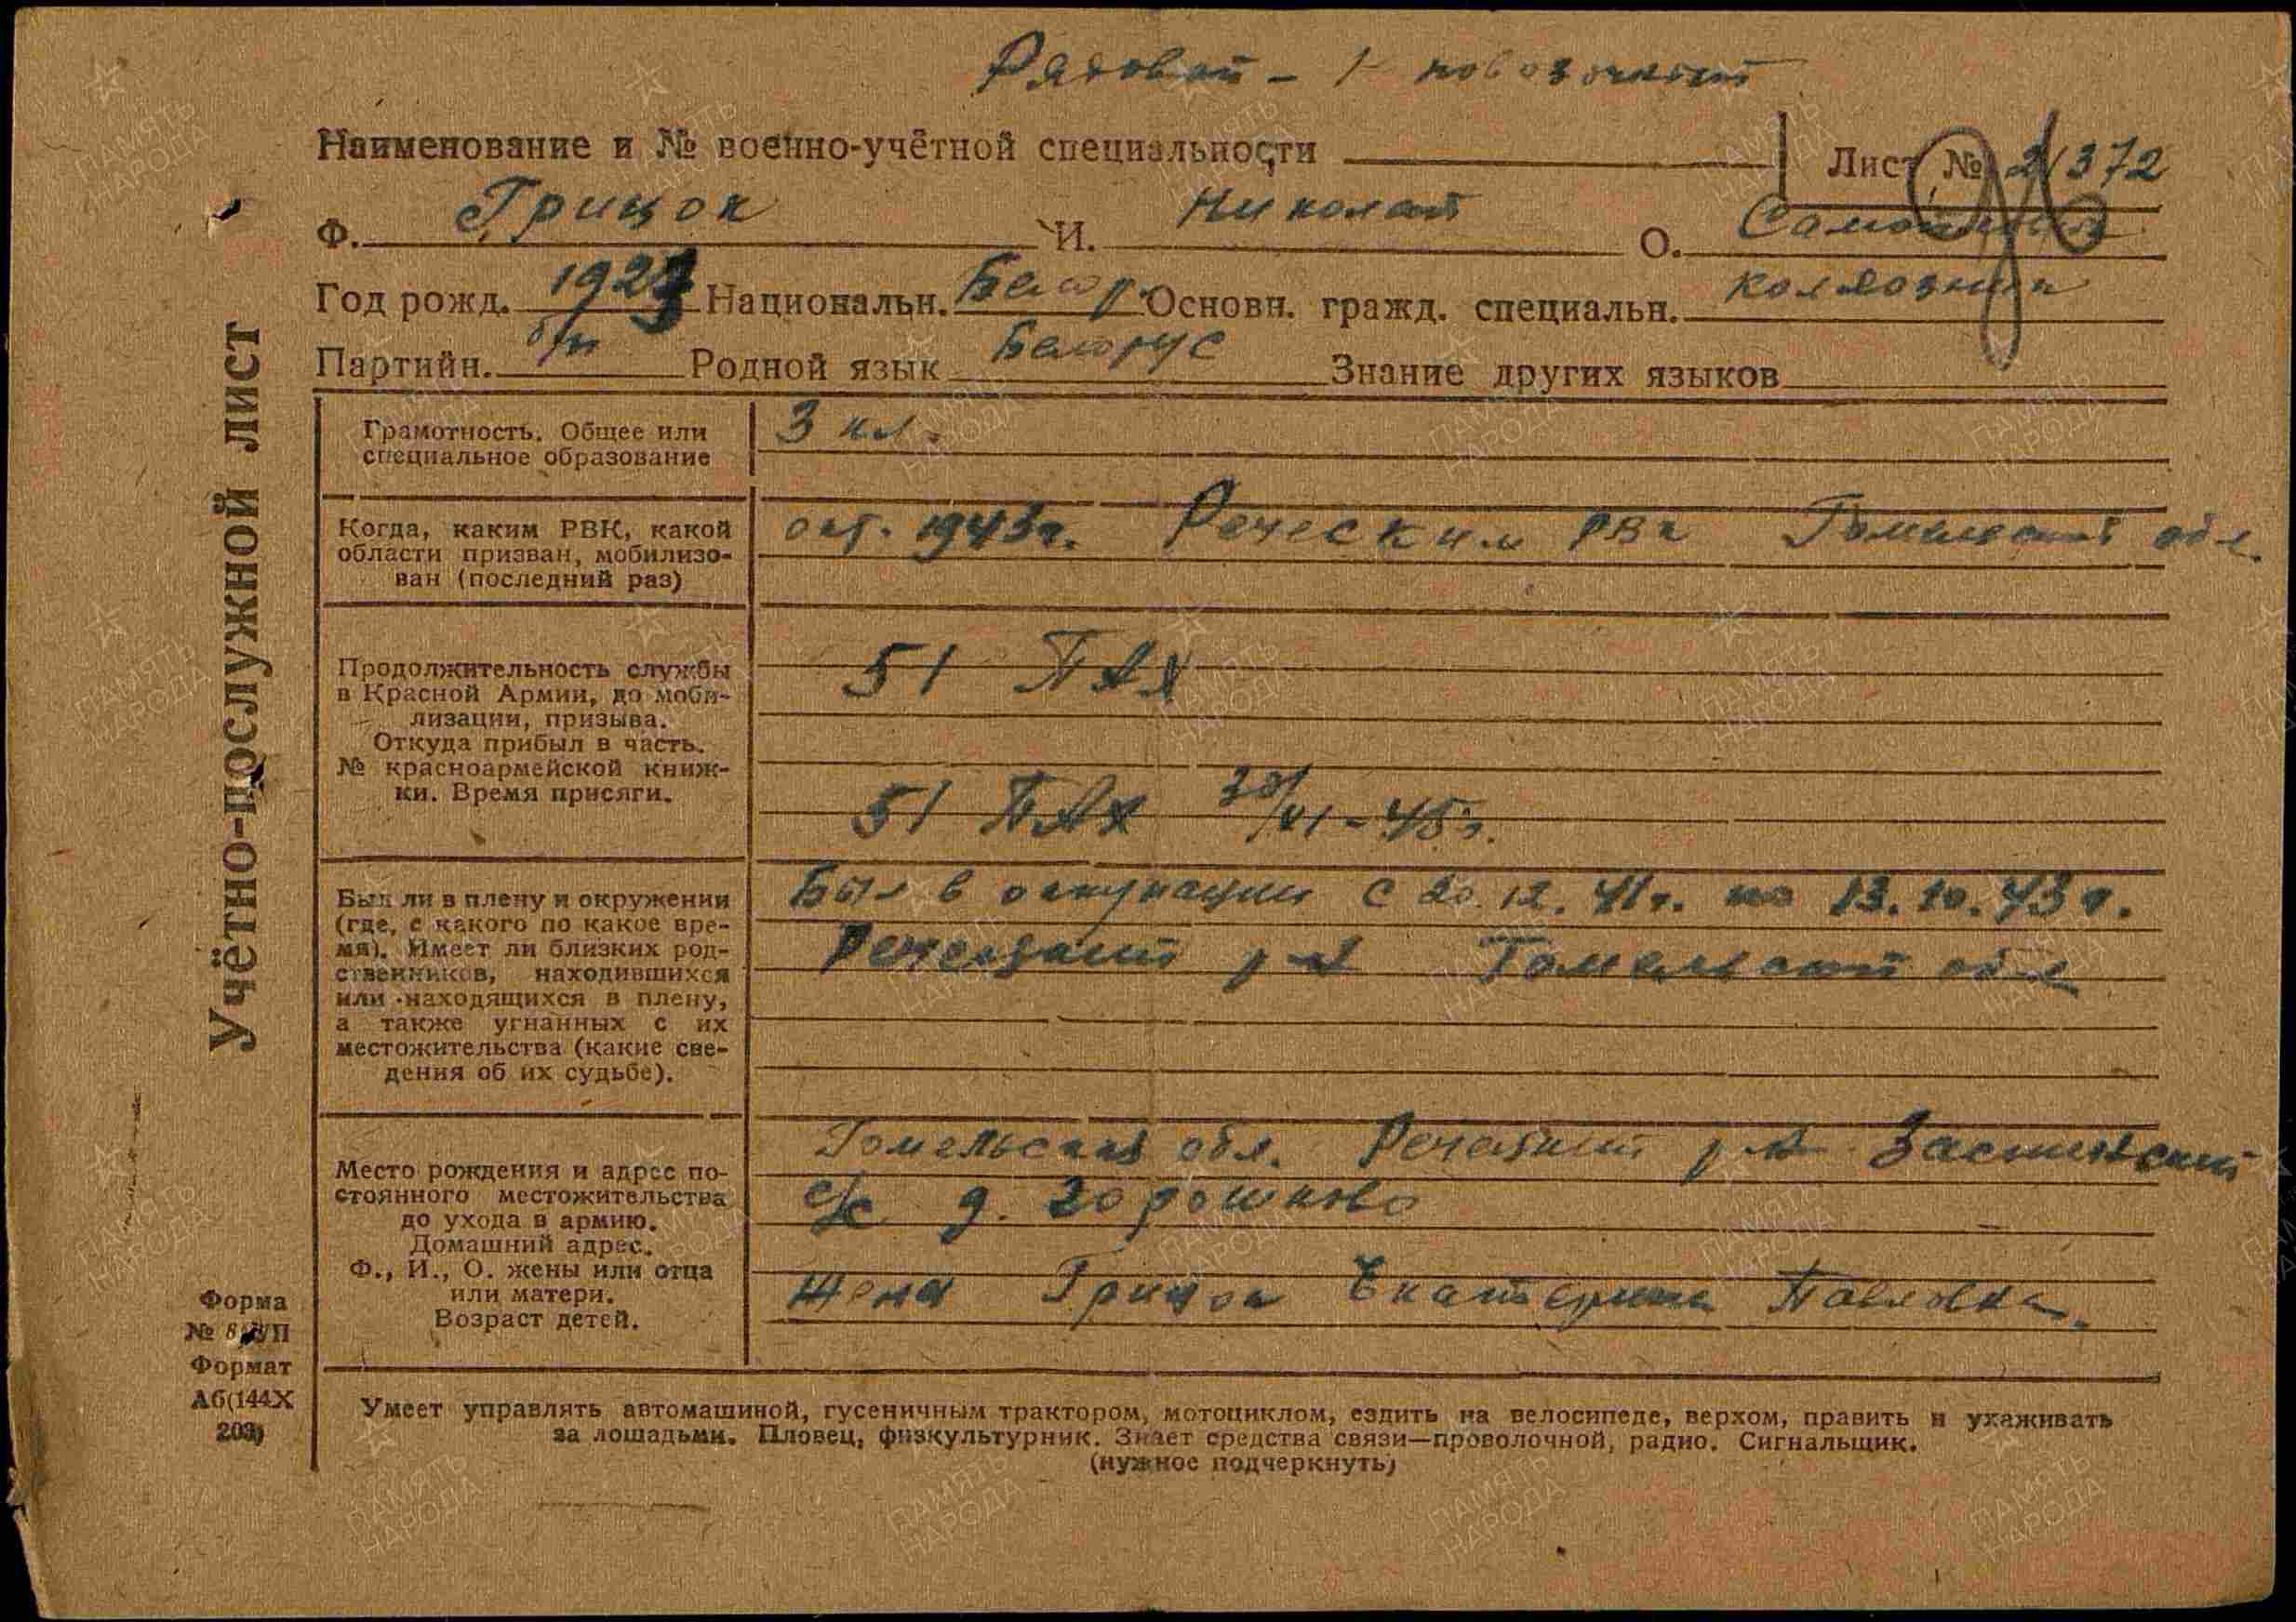 Рядовой - повозочный
Наименование и № военно-учётной специальности Лист № 2/372
Ф. Грицок И. Николай О. Самойлов
Год рожд. 192 Национальн. Белор. Основн. гражд. специальн. колхозник
Партийн. б/п Родной язык Белорус Знание других языков
Учётно-послужной лист
Грамотность. Общее или
специальное образование
3 кл.
Когда, каким РВК, какой
области призван, мобилизо-
ван (последний раз)
окт. 1943г. Реческим РВк Гомельской обл.
Продолжительность службы
в Красной Армии, до моби-
лизации, призыва.
Откуда прибыл в часть.
№ красноармейской книж-
ки. Время присяги.
51 ПАХ
51 ПАХ 30/VI-45г.
Был ли в плену и окружении
(где, с какого по какое вре-
мя). Имеет ли близких род-
ственников, находившихся
или находящихся в плену,
а также угнанных с их
местожительства (какие све-
дения об их судьбе).
Был в оккупации с 20.12.41г. по 13.10.43г.
р-н Гомельской обл
Место рождения и адрес по-
стоянного местожительства
до ухода в армию.
Домашний адрес.
Ф., И., О. жены или отца
или матери.
Возраст детей.
Гомельская обл. р-н
с/с д. Горошково
Жена Грицок Екатерина Павловна.
Форма
№ УП
Формат
А6(144Х
203)
Умеет управлять автомашиной, гусеничным трактором, мотоциклом, ездить на велосипеде, верхом, править и ухаживать
за лошадьми. Пловец, физкультурник. Знает средства связи—проволочной, радио. Сигнальщик.
(нужное подчеркнуть)
ПАМЯТЬ
НАРОДА